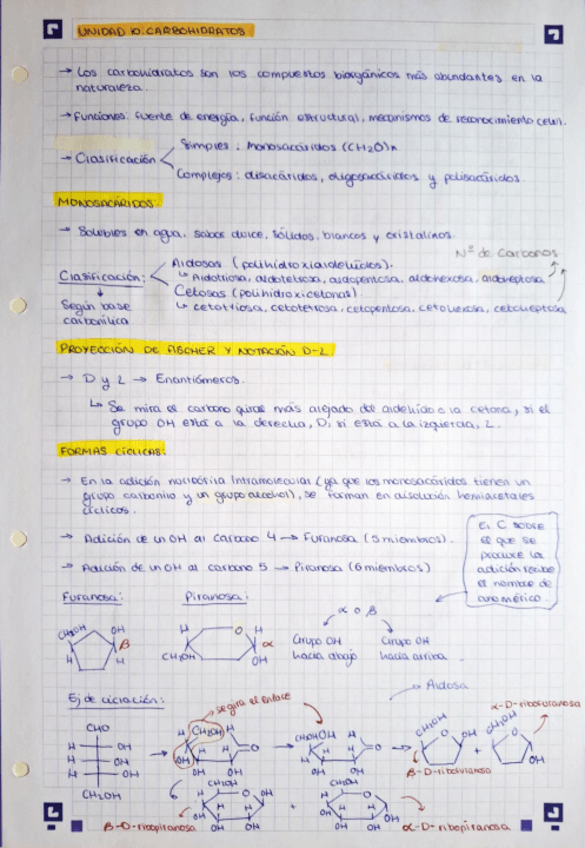 UNIDAD 10. CARBOHIDRATOS
→ Los carbohidratos son los compuestos biorgánicos más abundantes en la
naturaleza.
→ Funciones: fuente de energía, función estructural, mecanismos de reconocimiento celul.
→ Clasificación
Simples: Monosacáridos (CH2O)n
Complejos: disacáridos, oligosacáridos y polisacáridos.
MONOSACÁRIDOS:
→ Solubles en agua, sabor dulce, sólidos, blancos y cristalinos.
Nº de Carbonos
Clasificación:
Aldosas (polihidroxialdehídos).
↳ Aldotriosa, aldotetrosa, aldopentosa, aldohexosa, aldoheptosa
Según base
carbonílica
Cetosas (polihidroxicetonas)
↳ cetotriosa, cetotetrosa, cetopentosa, cetohexosa, cetoheptosa
PROYECCIÓN DE FISCHER Y NOTACIÓN D-L
→ D y L → Enantiómeros.
↳ Se mira el carbono quiral más alejado del aldehído o la cetona, si el
grupo OH está a la derecha, D, si está a la izquierda, L.
FORMAS CÍCLICAS:
→ En la adición nucleófila intramolecular (ya que los monosacáridos tienen un
grupo carbonilo y un grupo alcohol), se forman en disolución hemiacetales
cíclicos.
→ Adición de un OH al carbono 4 → Furanosa (5 miembros).
→ Adición de un OH al carbono 5 → Piranosa (6 miembros)
El C sobre
el que se
produce la
adición recibe
el nombre de
anomérico.
Furanosa:
Piranosa:
α o β
CH2OH OH β H H
H O H α CH2OH OH
Grupo OH
hacia abajo
Grupo OH
hacia arriba
Ej de ciclación:
segira el enlace
→ Aldosa
α-D-ribofuranosa
CHO
H OH
H OH
H OH
CH2OH
β-D-ribofuranosa
β-D-ribopiranosa
α-D-ribopiranosa